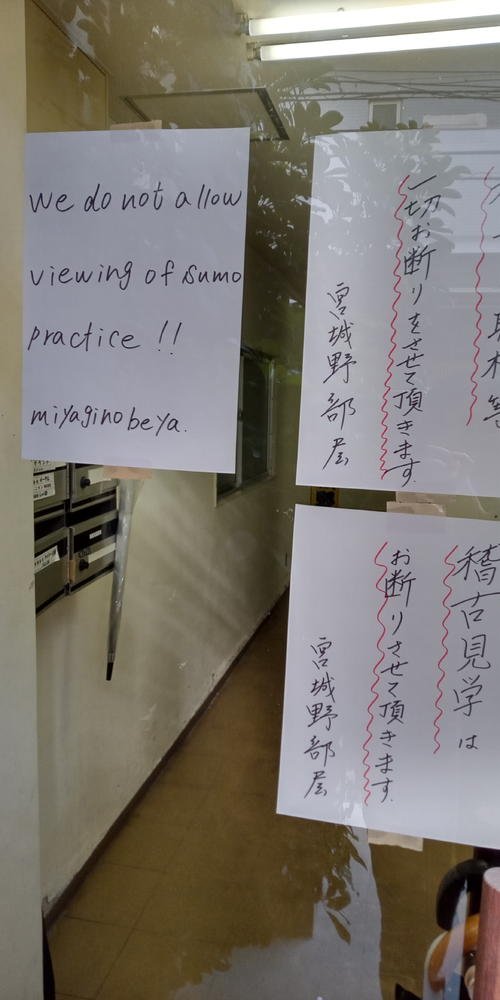 we do not allow
viewing of sumo
practice !!
miyaginobeya.
取材等
一切お断りをさせて頂きます.
宮城野部屋
稽古見学は
お断りさせて頂きます.
宮城野部屋